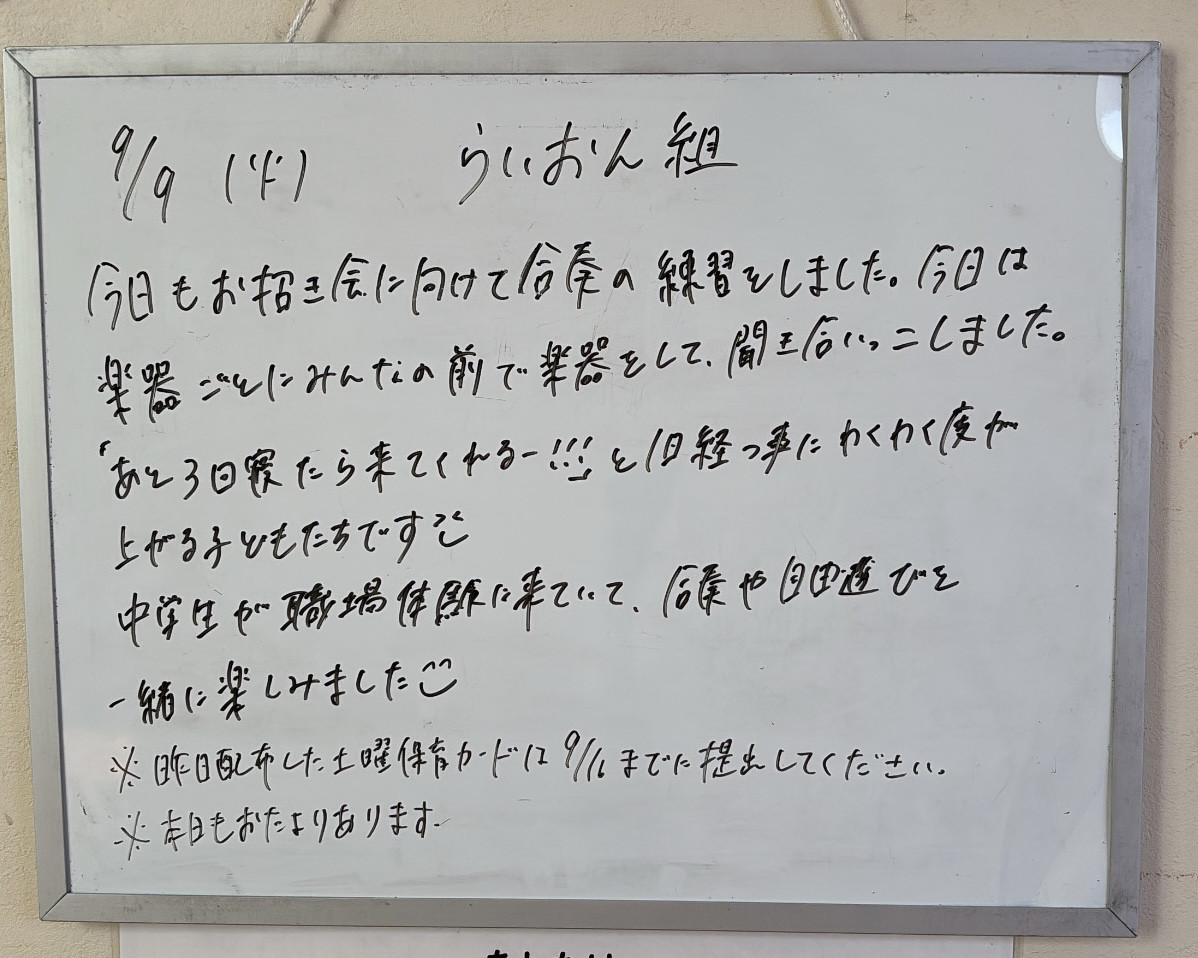 9/9 (火) らいおん組
今日もお招き会に向けて合奏の練習をしました。今日は
楽器ごとにみんなの前で楽器をして、聞き合いっこしました。
「あと3日寝たら来てくれるー!!!」と1日経つ事にわくわく度が
上がる子どもたちです
中学生が職場体験に来ていて、合奏や自由遊びを
一緒に楽しみました
※昨日配布した土曜保育カードは9/16までに提出してください。
※本日もおたよりあります。